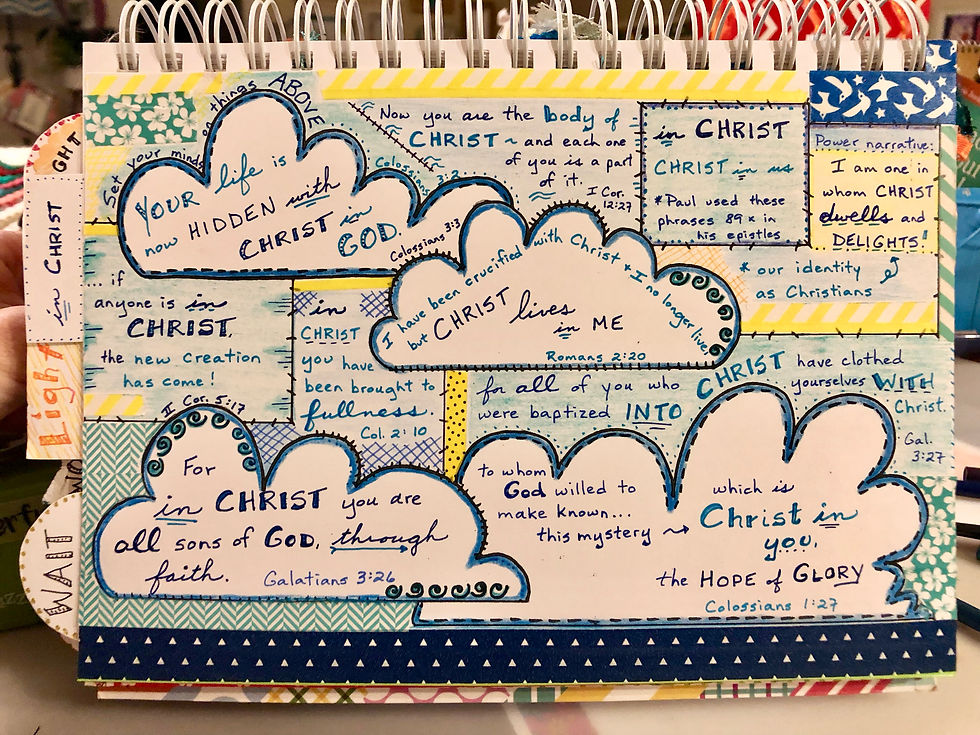 Set your minds
on things ABOVE
Colossians 3:2
YOUR life is
now HIDDEN with
CHRIST in
GOD.
Colossians 3:3
Now you are the body of
CHRIST ~ and each one
of you is a part
of it.
I Cor.
12:27
in CHRIST
CHRIST in us
*Paul used these
phrases 89x in
his epistles
Power narrative:
I am one in
whom CHRIST
dwells and
DELIGHTS!
* our identity
as Christians
I have been crucified with Christ + I no longer live
but CHRIST lives
in ME
Romans 2:20
... if
anyone is in
CHRIST,
the new creation
has come!
II Cor. 5:17
in
CHRIST
you have
been brought to
fullness.
Col. 2:10
for all of you who
were baptized INTO
CHRIST have clothed
yourselves WITH
Christ.
Gal.
3:27
For
in CHRIST you are
all sons of GOD, through
faith.
Galatians 3:26
to whom
God willed to
make known...
this mystery
which is
Christ in
you,
the HOPE of GLORY
Colossians 1:27
GHT
in CHRIST
Light
WAIT